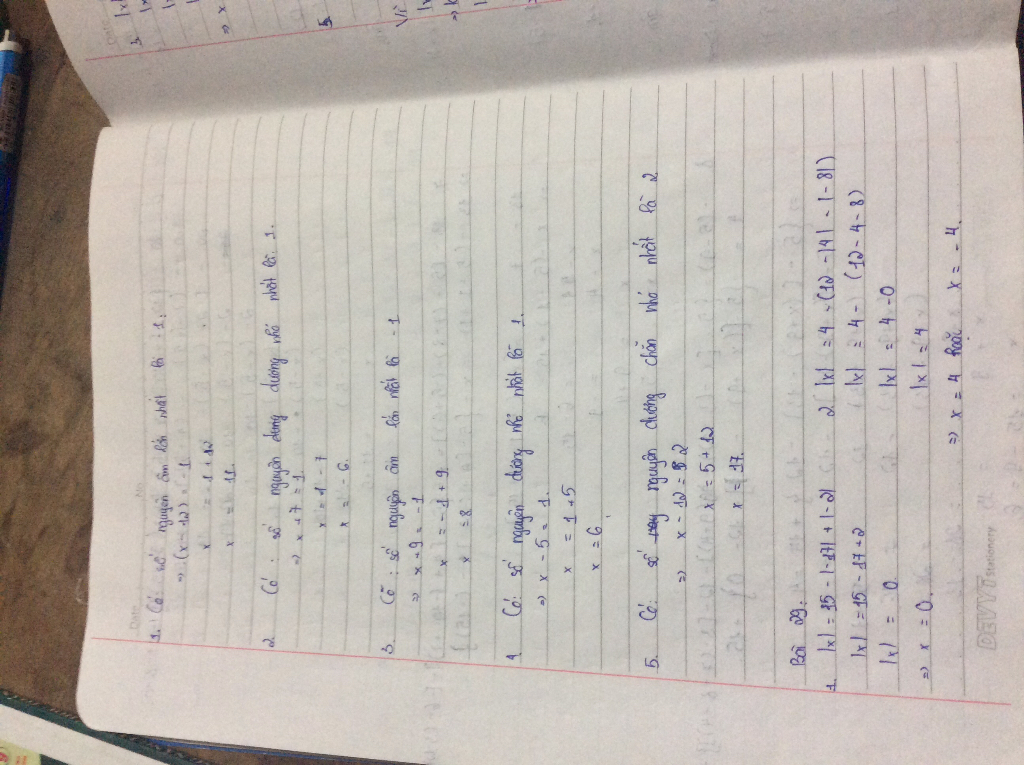 1. Có: số nguyên âm lớn nhất là: -1.
=> (x - 12) = -1
x = -1 + 12
x = 11.
2. Có: số nguyên dung dương nhỏ nhất là 1.
=> x + 7 = 1.
x = 1 - 7
x = -6.
3. Có: số nguyên âm lớn nhất là -1
=> x + 9 = -1
x = -1 + 9
x = 8
4 Có: số nguyên dương nhỏ nhất là 1.
=> x - 5 = 1.
x = 1 + 5
x = 6
5. Có: số nguyên dương chẵn nhỏ nhất là 2
=> x - 12 = 2
x = 5 + 12
x = 17.
Bài 29.
1. |x| = 15 - |-17| + |-2|
|x| = 15 - 17 + 2
|x| = 0
=> x = 0.
2 |x| = 4 - (12 - |4| - |-8|)
|x| = 4 - (12 - 4 - 8)
|x| = 4 - 0
|x| = 4
=> x = 4 hoặc x = -4.
DELVVI Stationery